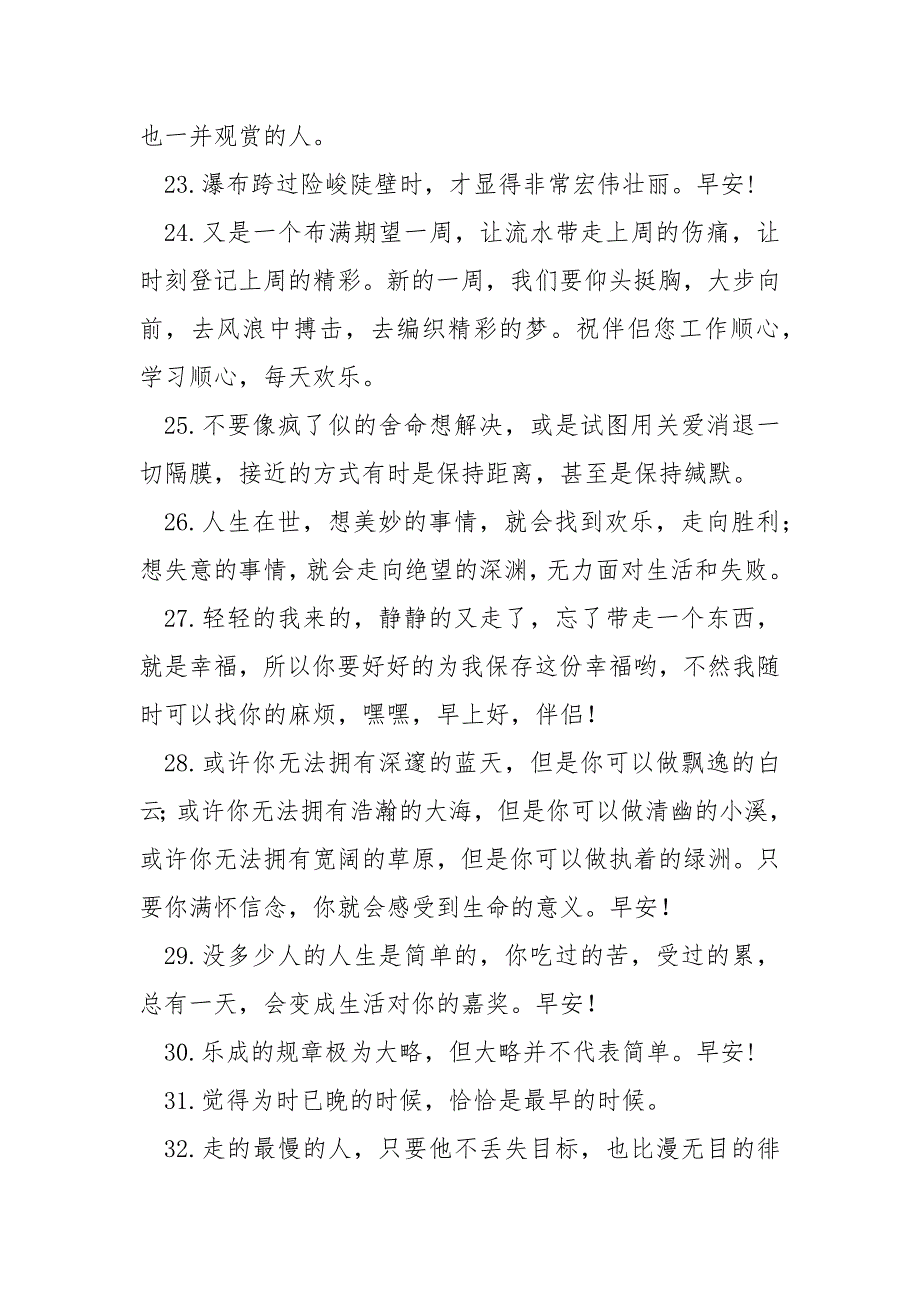 也一并观赏的人。
23.瀑布跨过险峻陡壁时，才显得非常宏伟壮丽。早安!
24.又是一个布满期望一周，让流水带走上周的伤痛，让
时刻登记上周的精彩。新的一周，我们要仰头挺胸，大步向
前，去风浪中搏击，去编织精彩的梦。祝伴侣您工作顺心，
学习顺心，每天欢乐。
25.不要像疯了似的舍命想解决，或是试图用关爱消退一
切隔膜，接近的方式有时是保持距离，甚至是保持缄默。
26.人生在世，想美妙的事情，就会找到欢乐，走向胜利；
想失意的事情，就会走向绝望的深渊，无力面对生活和失败。
27.轻轻的我来的，静静的又走了，忘了带走一个东西，
就是幸福，所以你要好好的为我保存这份幸福哟，不然我随
时可以找你的麻烦，嘿嘿，早上好，伴侣！
28.或许你无法拥有深邃的蓝天，但是你可以做飘逸的白
云；或许你无法拥有浩瀚的大海，但是你可以做清幽的小溪，
或许你无法拥有宽阔的草原，但是你可以做执着的绿洲。只
要你满怀信念，你就会感受到生命的意义。早安！
29.没多少人的人生是简单的，你吃过的苦，受过的累，
总有一天，会变成生活对你的嘉奖。早安！
30.乐成的规章极为大略，但大略并不代表简单。早安!
31.觉得为时已晚的时候，恰恰是最早的时候。
32.走的最慢的人，只要他不丢失目标，也比漫无目的徘